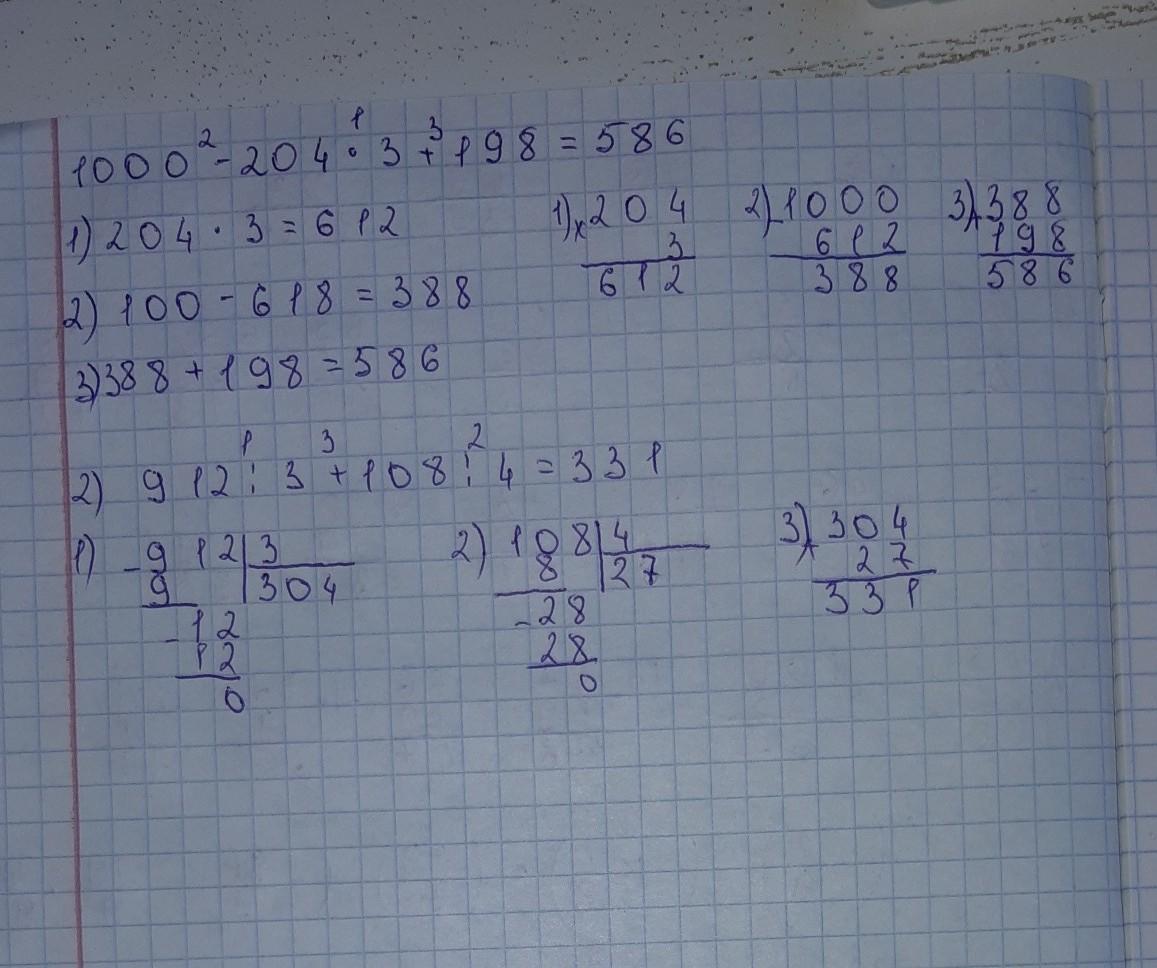 1000 - 204 · 3 + 198 = 586
2 1 3
1) 204 · 3 = 612
2) 100 - 618 = 388
3) 388 + 198 = 586
1) × 204
3
612
2) - 1000
612
388
3) + 388
198
586
1 3 2
2) 912 : 3 + 108 : 4 = 331
1) - 912 | 3
9 | 304
- 12
12
0
2) 108 | 4
8 | 27
- 28
28
0
3) + 304
27
331